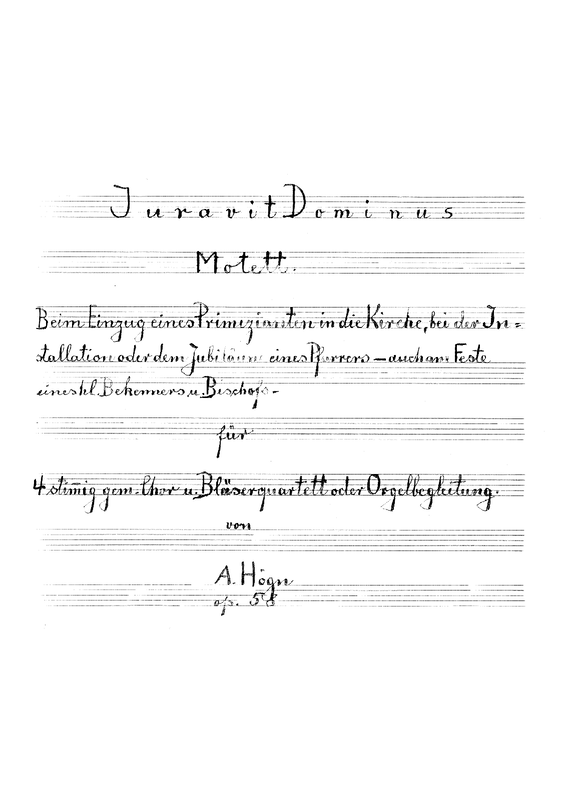 Juravit Dominus
Motett.
Beim Einzug eines Primizianten in die Kirche, bei der In=
stallation oder dem Jubiläum eines Pfarrers – auch am Feste
eines hl. Bekenners u. Bischofs –
für
4 stimig gem. Chor u. Bläserquartett oder Orgelbegleitung.
von
A. Högn
op. 58